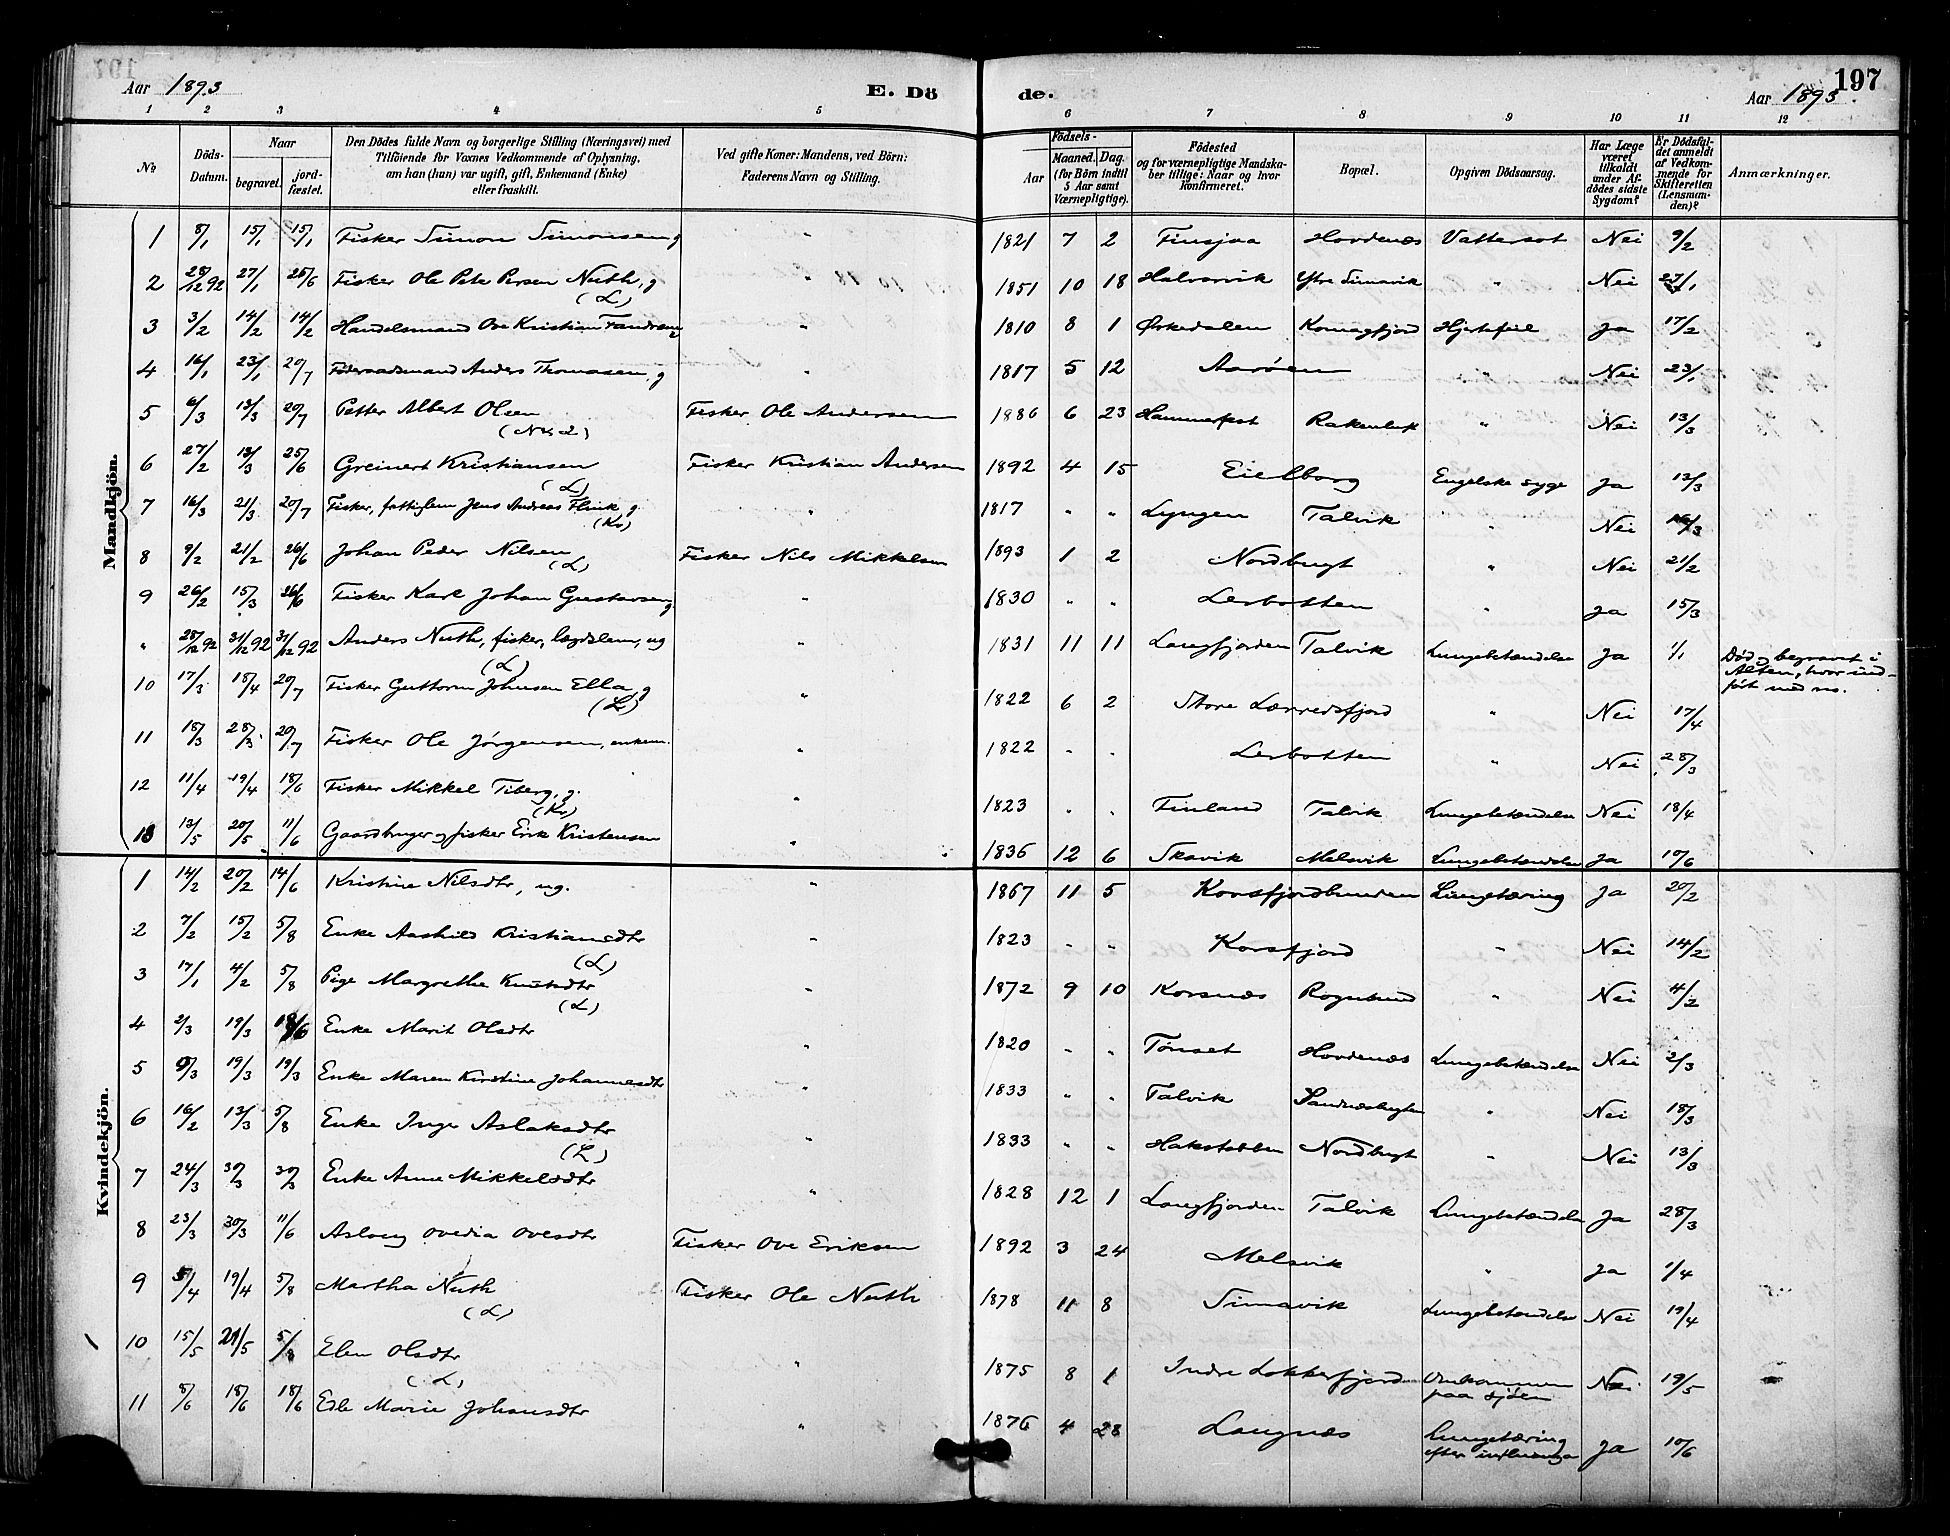 197
Aar 1893
E. Dö
de.
Aar 1893.
1 2 3 4 5 6 7 8 9 10 11 12
No.
Döds-Datum.
Naar
begravet.
jord-fæstet.
Den Dödes fulde Navn og borgerlige Stilling (Næringsvei) med
Tilføiende for Voxnes Vedkommende af Oplysning,
om han (hun) var ugift, gift, Enkemand (Enke)
eller fraskilt.
Ved gifte Koner: Mandens, ved Börn:
Faderens Navn og Stilling.
Födsels-
Aar
Maaned. Dag.
(for Börn indtil
5 Aar samt
Værnepligtige).
Födested
og for værnepligtige Mandska-
ber tillige: Naar og hvor
konfirmeret.
Bopæl.
Opgiven Dödsaarsag.
Har Læge
været
tilkaldt
under Af-
dödes sidste
Sygdom?
Er Dödsfal-
det anmeldt
af Vedkom-
mende for
Skifteretten
(Lensman-
den)?
Anmærkninger.
Mandkjön.
1 8/1 15/1 15/1 Fisker Simon Simonsen, g " 1821 7 2 Finsjaa Hovdenæs Vattersot Nei 9/2
2 28/12 92 27/1 25/6 Fisker Ole Peter Persen Nuth, g (L) " 1851 10 18 Halvarvik Ystre Simavik " Nei 27/1
3 3/2 14/2 14/2 Handelsmand Ove Kristian " 1810 8 1 Ørkedalen Komagfjord Hjertefeil Ja 17/2
4 16/1 23/1 20/7 Föderaadsmand Anders Thomasen, g " 1817 5 12 Aarøen " Nei 23/1
5 6/3 13/3 20/7 Petter Albert Olsen Fisker Ole Andersen 1886 6 23 Hammerfest " Nei 13/3
6 27/2 13/3 25/6 Greinert Kristiansen (L) Fisker Kristian Andersen 1892 4 15 Eielborg Engelske syge Ja 13/3
7 16/3 21/3 20/7 Fisker, fattiglem Jens Andreas Flink g. (Kv) " 1817 " " Lyngen Talvik " Nei 16/3
8 9/2 21/2 26/6 Johan Peder Nilsen (L) Fisker Nils Mikkelsen 1893 1 2 Nordbugt " Nei 21/2
9 26/2 15/3 26/6 Fisker Karl Johan Gustavsen, g " 1830 " " Lerbotten " Ja 15/3
" 28/12 92 31/12 92 31/12 92 Anders Nuth, fisker, lægdslem, ug (L) " 1831 11 11 Langfjorden Talvik Lungebetændelse Ja 1/1 Död og begravet i
Alten, hvor ind-
ført med no.
10 17/3 18/4 20/7 Fisker Guttorm Johnsen Ella, g (L) " 1822 6 2 Store Lerredsfjord " Nei 17/4
11 18/3 28/3 20/7 Fisker Ole Jørgensen, enkem. " 1822 " " Lerbotten " Nei 28/3
12 11/4 19/4 18/6 Fisker Mikkel Tiberg, g. (Kv) " 1823 " " Finland Talvik Lungebetændelse Nei 18/4
13 13/5 20/5 11/6 Gaardbruger og fisker Erik Kristensen " 1836 12 6 Skavik Melsvik Lungebetændelse Ja 10/6
Kvindekjön.
1 14/2 20/2 14/6 Kristine Nilsdtr, ug. " 1867 11 5 Korsfjordbunden Lungetæring Ja 20/2
2 7/2 15/2 5/8 Enke Aashild Kristiansdtr (L) " 1823 " " Korsfjord " Nei 14/2
3 17/1 4/2 5/8 Pige Margrethe Knutsdtr (L) " 1872 9 10 Korsnæs Rognsund " Nei 4/2
4 2/3 19/3 18/6 Enke Marit Olsdtr " 1820 " " Tønset Hovdenæs Lungebetændelse Nei 2/3
5 9/3 19/3 19/3 Enke Maren Kirstine Johannesdtr " 1833 " " Talvik Sandnæsbugten " Nei 18/3
6 16/2 13/3 5/8 Enke Inge Aslaksdtr (L) " 1833 " " Hakstabben Nordbugt " Nei 13/3
7 24/3 30/3 30/3 Enke Anne Mikkelsdtr " 1828 12 1 Langfjorden Talvik Lungebetændelse Ja 28/3
8 23/3 30/3 11/6 Aslaug Ovedia Ovesdtr Fisker Ove Eriksen 1892 3 24 Melsvik " Ja 1/4
9 5/4 19/4 5/8 Martha Nuth (L) Fisker Ole Nuth 1878 11 8 Simavik Lungebetændelse Nei 19/4
10 15/5 21/5 5/8 Elen Olsdtr (L) " 1875 8 1 Indre Lokkerfjord Omkommen
paa sjöen Nei 19/5
11 8/6 18/6 18/6 Edle Marie Johansdtr " 1876 4 28 Langnæs Lungetæring
efter influenza Ja 10/6